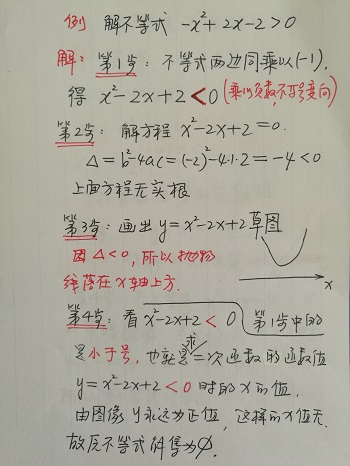 例 解不等式 -x²+2x-2>0
解: 第1步: 不等式两边同乘以(-1),
得 x²-2x+2<0 (乘以负数,不等号变向)
第2步: 解方程 x²-2x+2=0.
Δ=b²-4ac=(-2)²-4·1·2=-4<0
上面方程无实根
第3步: 画出 y=x²-2x+2 草图
因Δ<0, 所以抛物
线落在x轴上方.
x
第4步: 看 x²-2x+2<0 第1步中的
是小于号, 也就是求二次函数的函数值
y=x²-2x+2<0 时的x的值,
由图像y永远为正值, 这样的x值无.
故原不等式解集为∅.